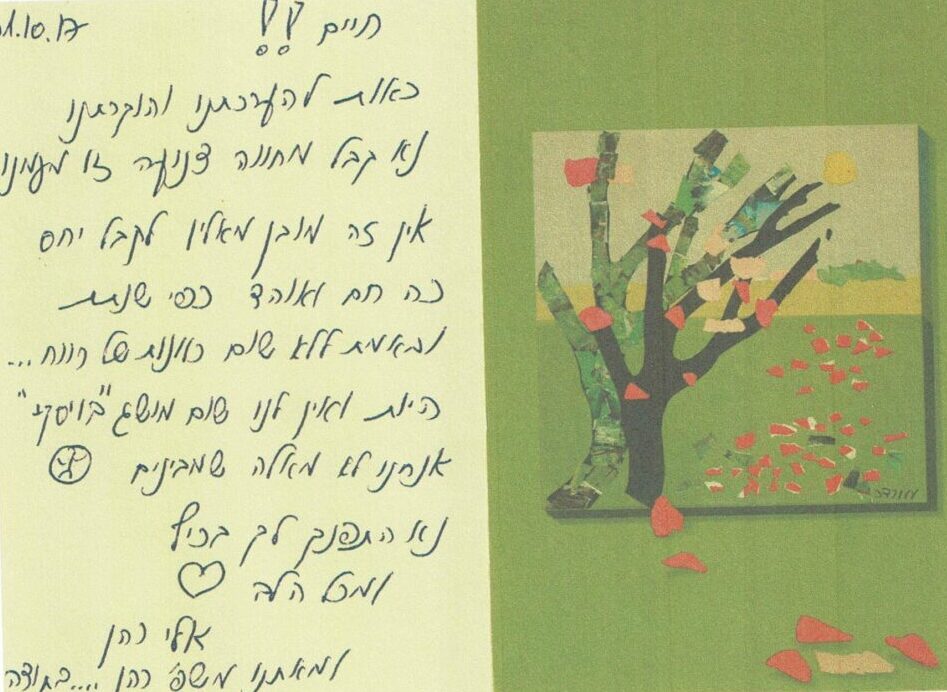 חיים !! 31.10.17
כאות להערכתנו והוקרתנו
נא קבל מחווה צנועה זו מעמנו
אין זה מובן מאליו לקבל יחס
כה חם ואוהד כפי שנתת
ובאמת ללא שום כוונות של רווח...
היות ואין לנו שום מושג "בויסקי"
אנחנו לא מאלה שמבינים
נא התפנק לך בכיף
ומכל הלב
אלי כהן
ומאתנו משפ' כהן .... בתודה